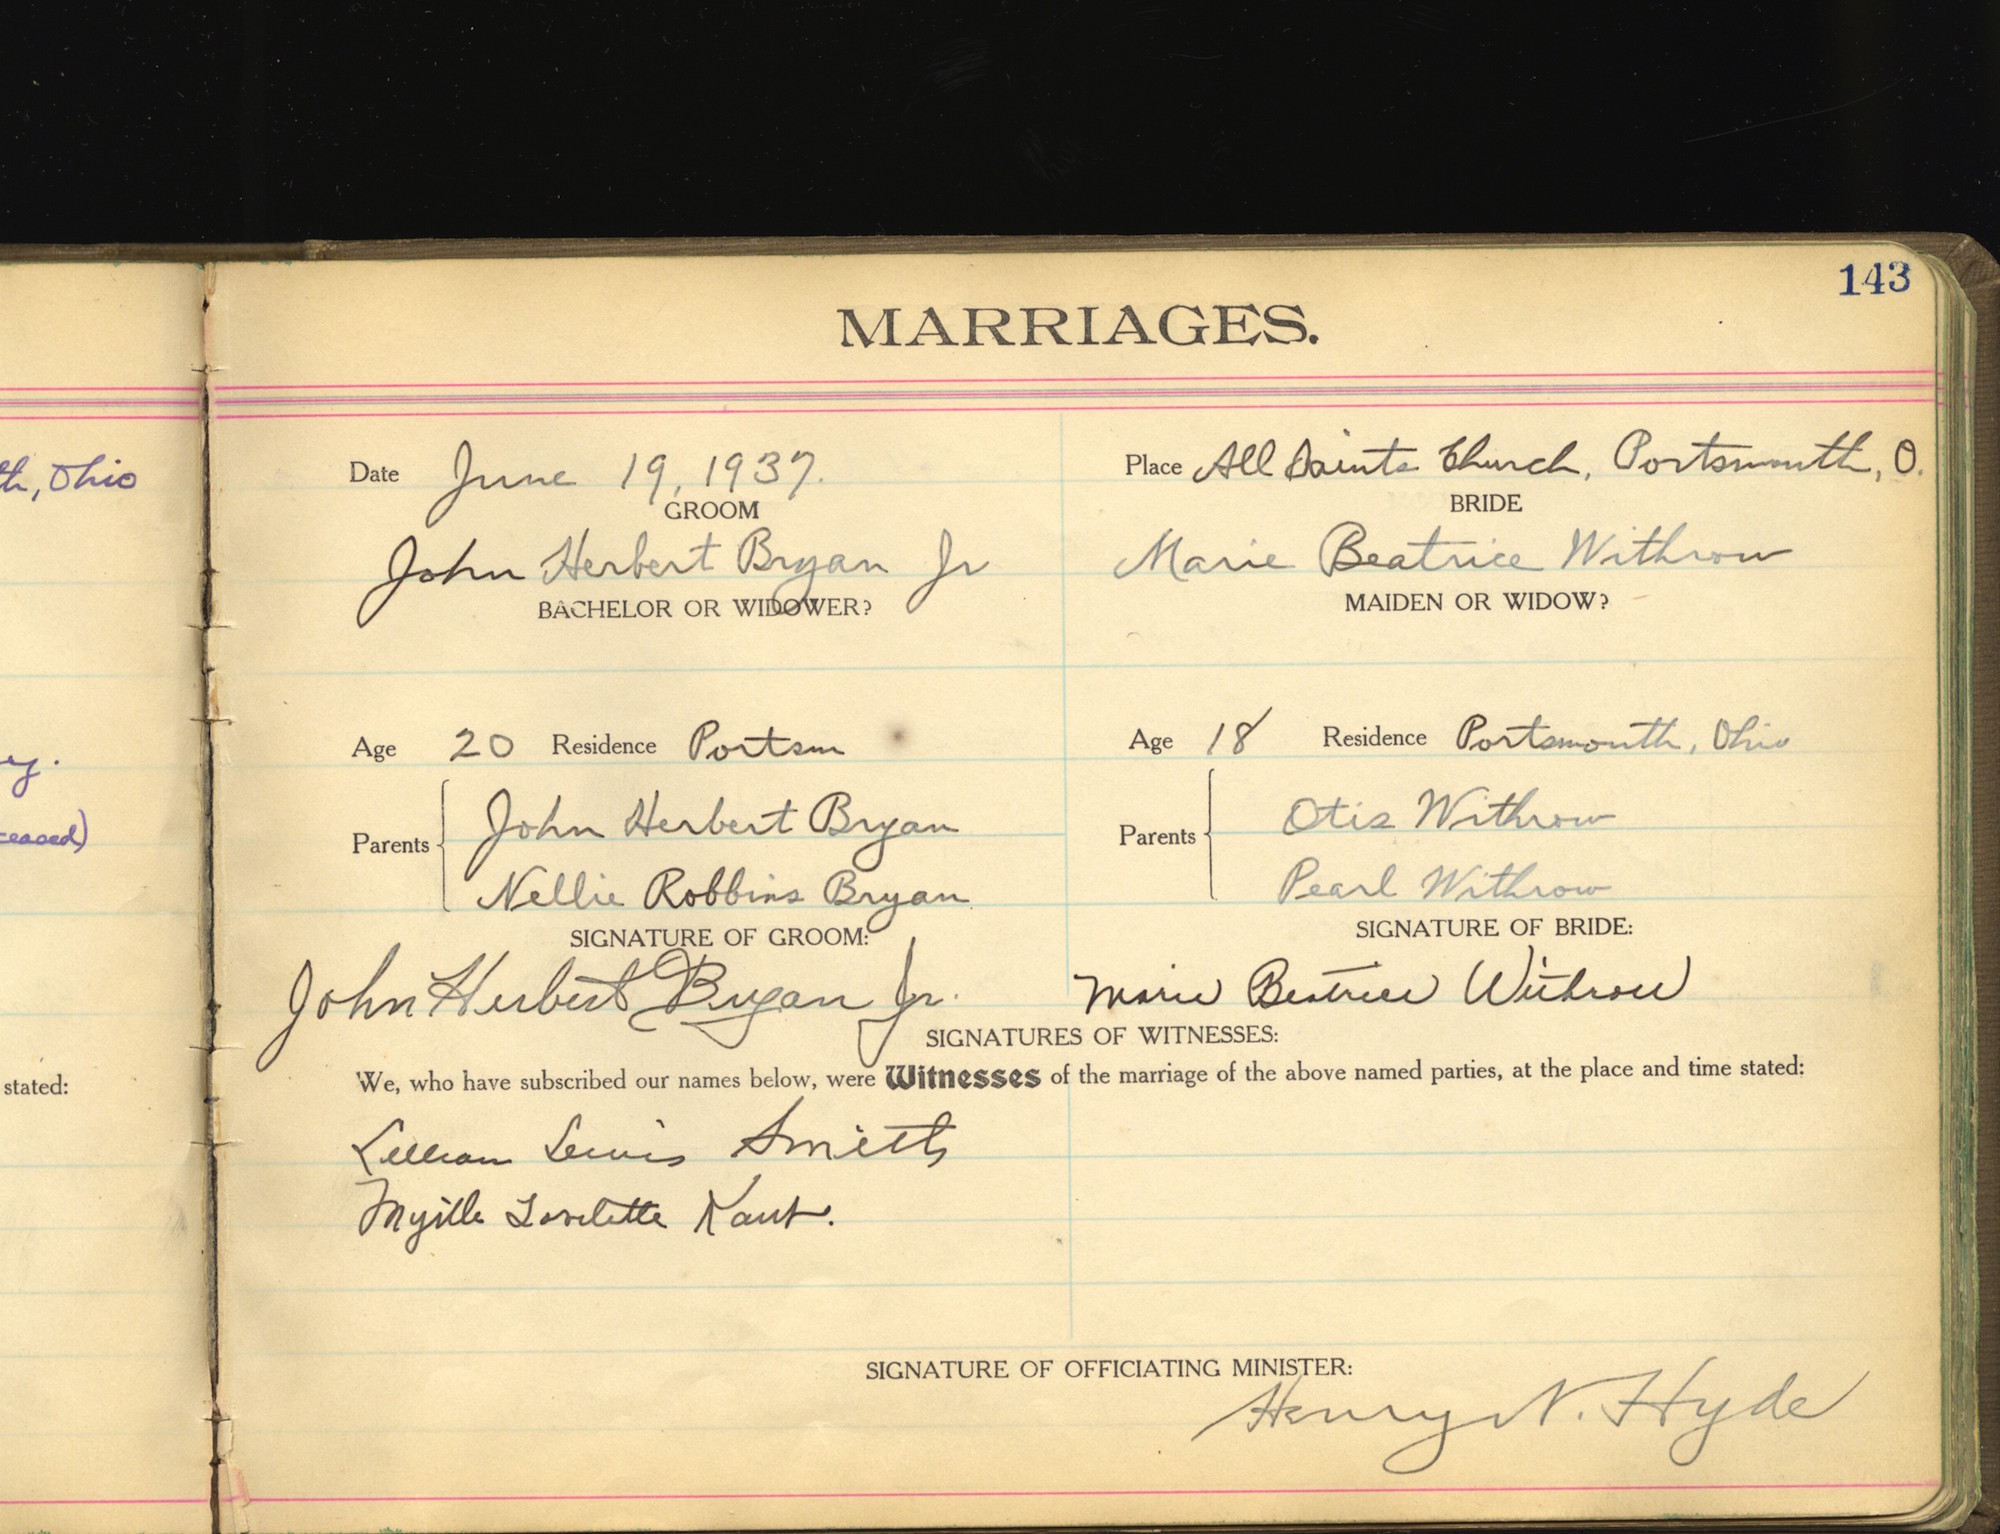 143
MARRIAGES.
th, Ohio
ey.
ceased)
stated:
Date June 19, 1937.
Place All Saints Church, Portsmouth, O.
GROOM
BRIDE
John Herbert Bryan Jr
Marie Beatrice Withrow
BACHELOR OR WIDOWER?
MAIDEN OR WIDOW?
Age 20 Residence Portsm
Age 18 Residence Portsmouth, Ohio
Parents
John Herbert Bryan
Nellie Robbins Bryan
Parents
Otis Withrow
Pearl Withrow
SIGNATURE OF GROOM:
SIGNATURE OF BRIDE:
John Herbert Bryan Jr.
Marie Beatrice Withrow
SIGNATURES OF WITNESSES:
We, who have subscribed our names below, were Witnesses of the marriage of the above named parties, at the place and time stated:
Lillian Lewis Smith
Kaut.
SIGNATURE OF OFFICIATING MINISTER:
Henry N. Hyde